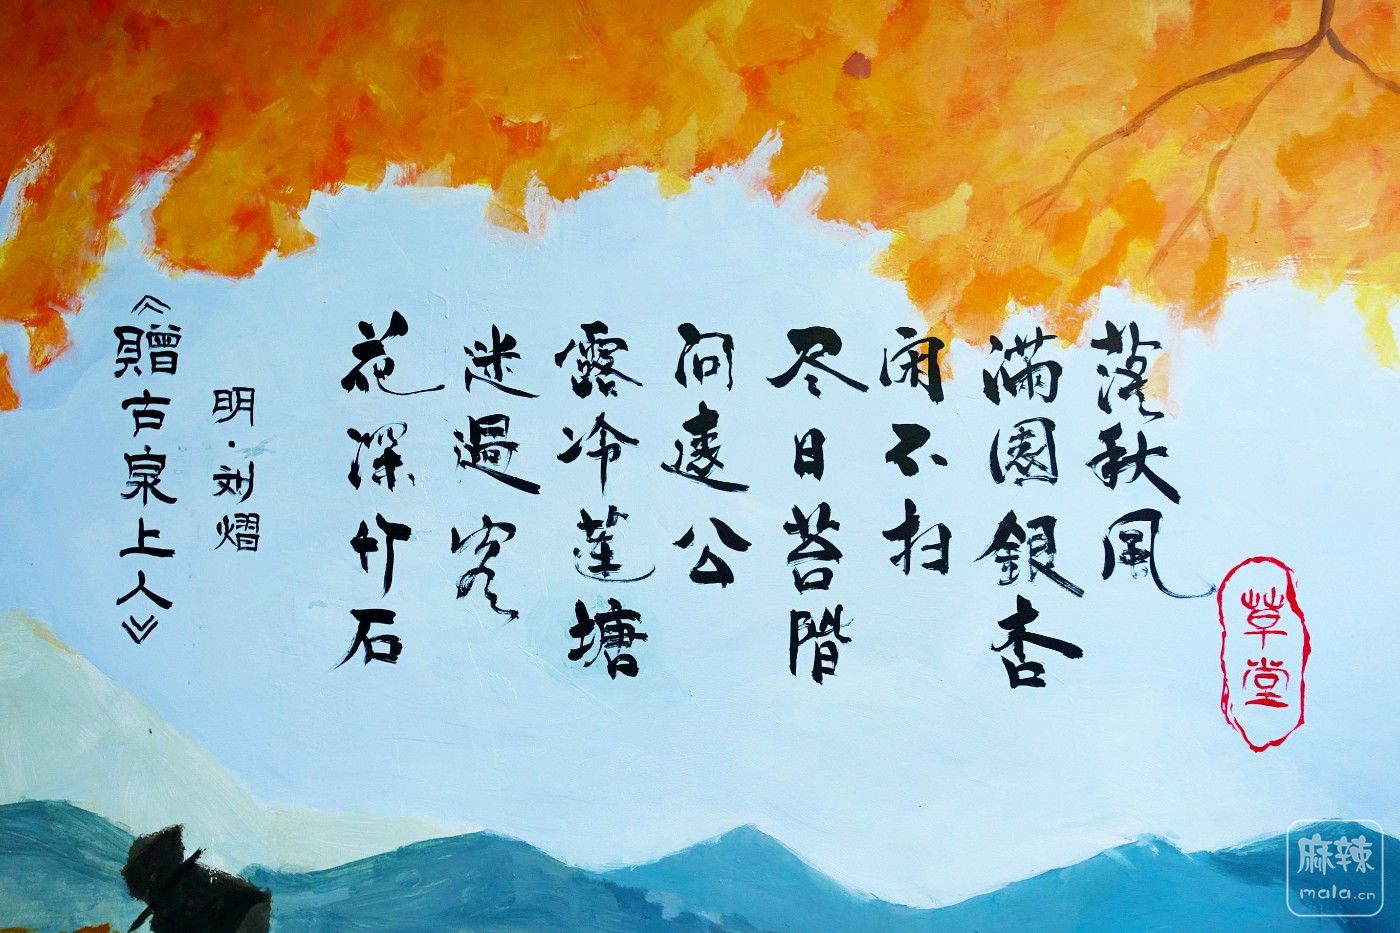 草堂
落秋風
滿園銀杏
闲不扫
尽日苔階
问遠公
露冷蓮塘
迷過客
花深竹石
明·刘熠
《贈古泉上人》
麻辣
mala.cn